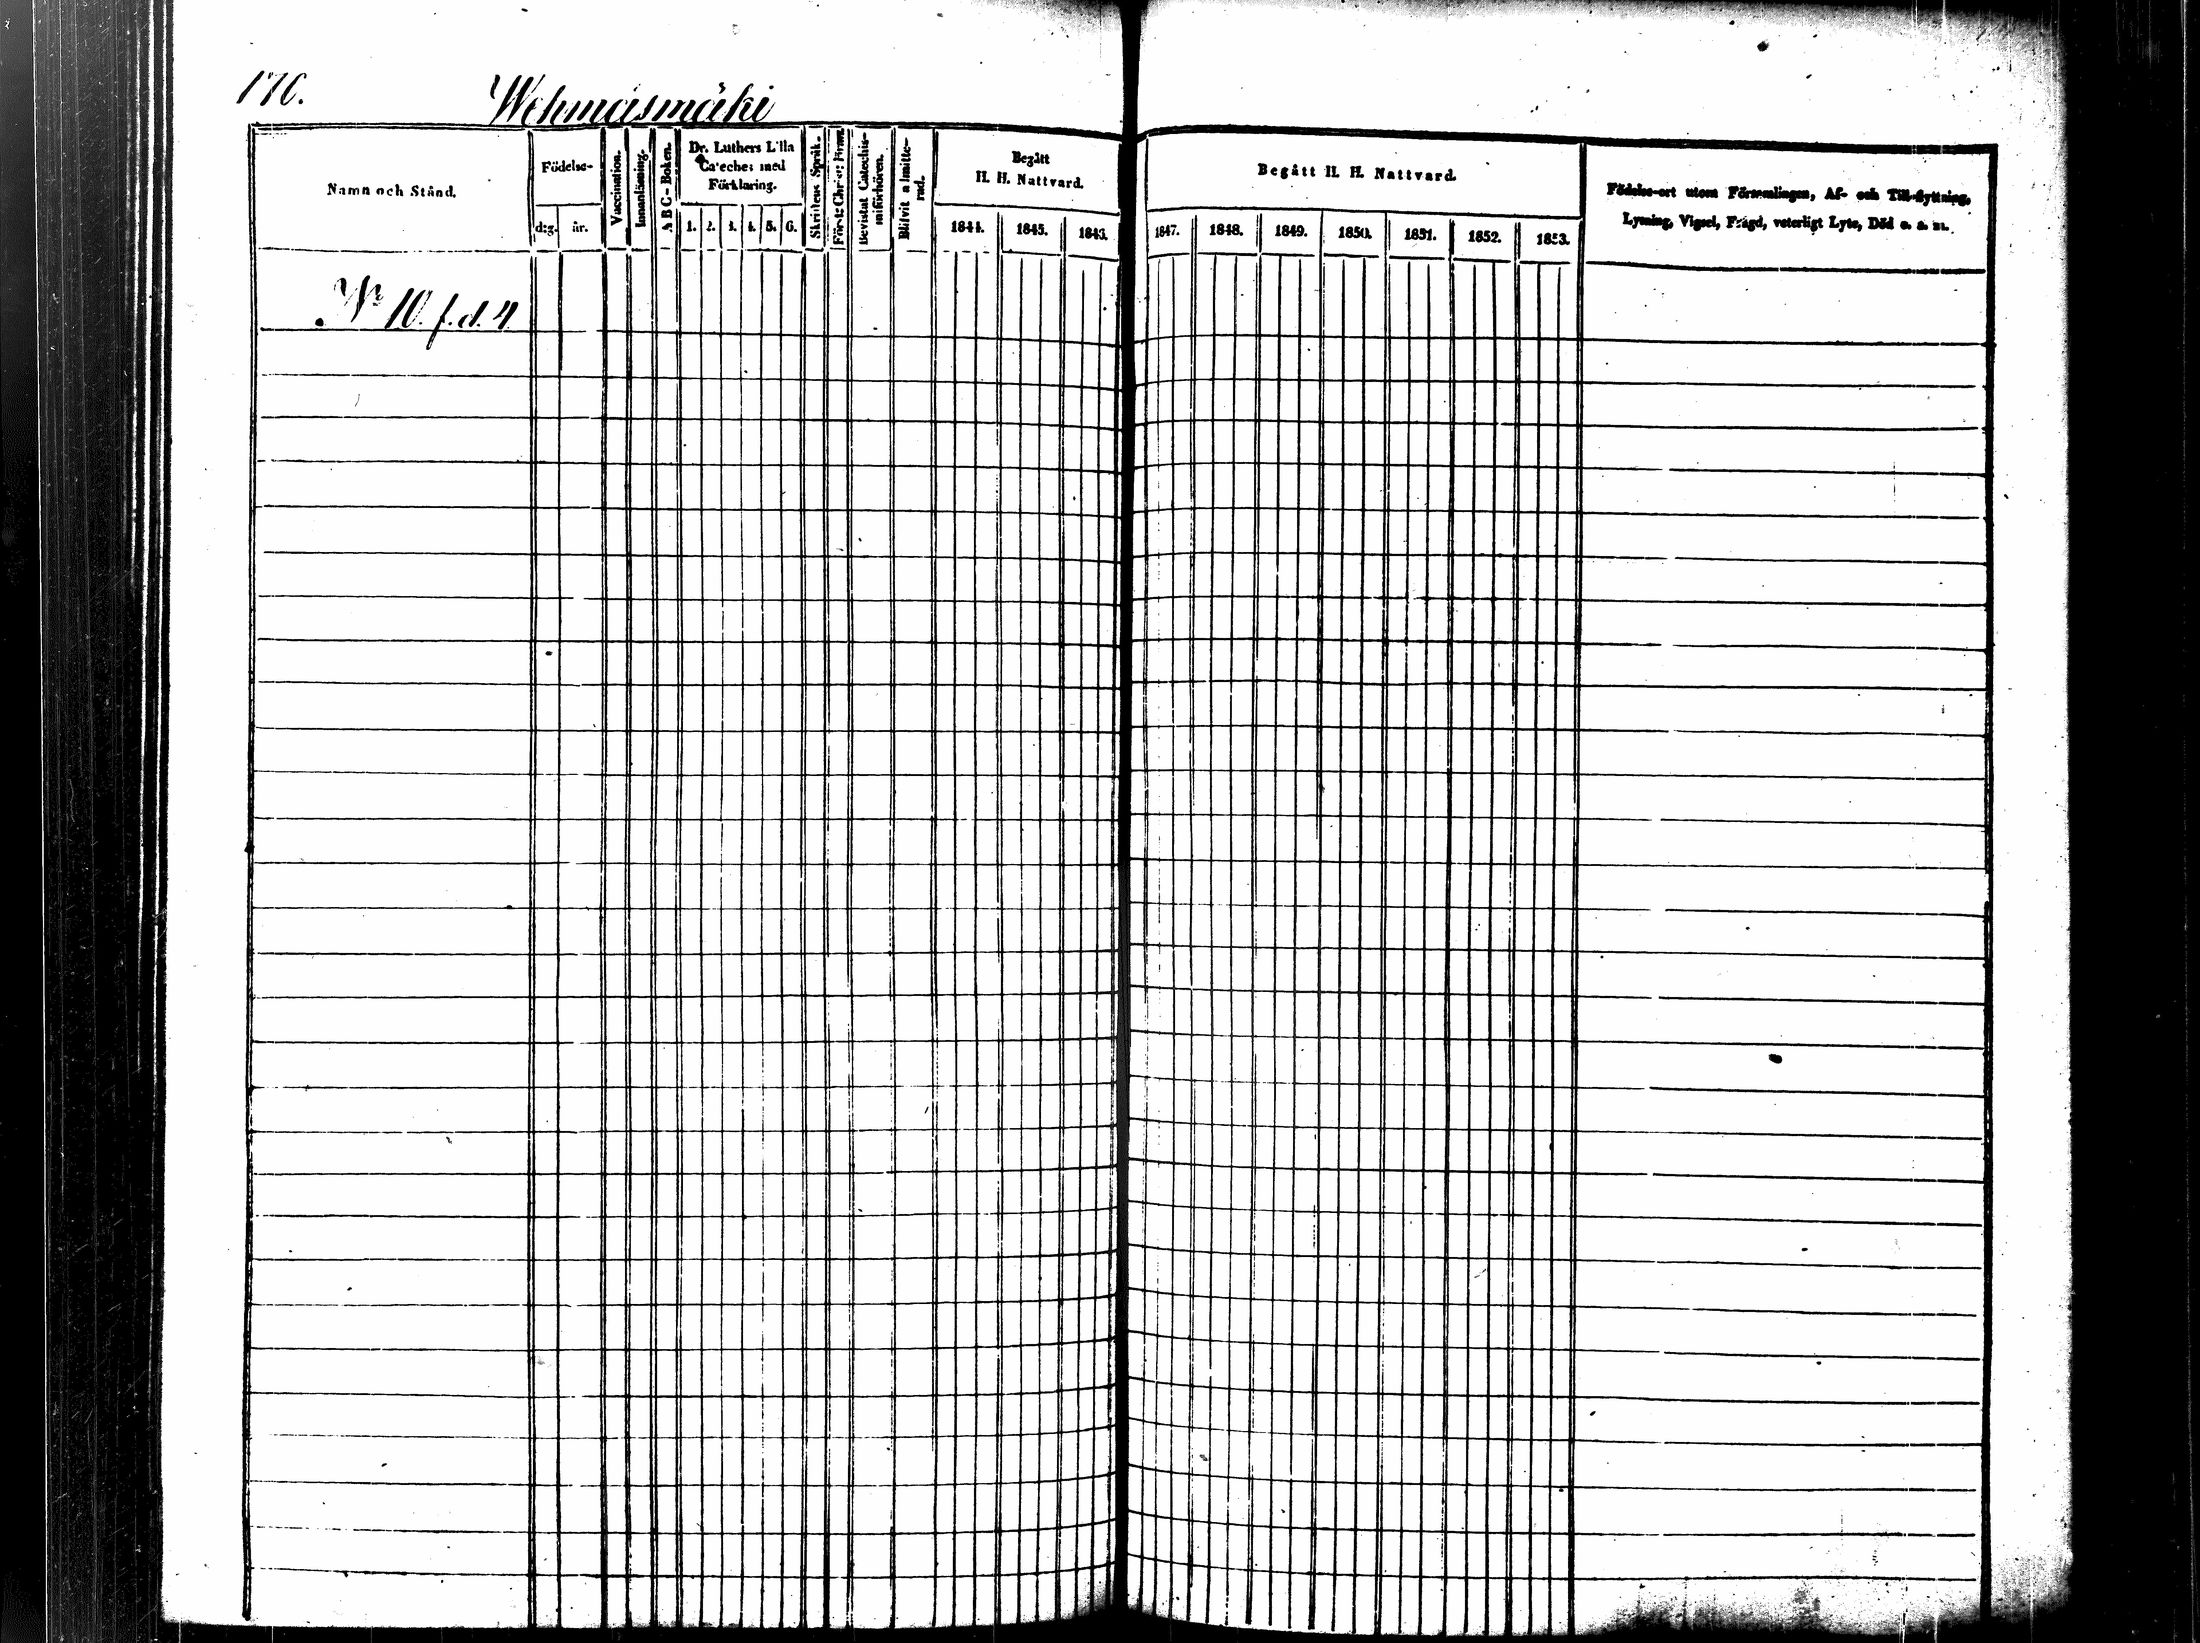 176.
Wehmasmäki
Namn och Stånd.
Födelse-
dag.
år.
Vaccination.
Innanläsning.
A B C - Boken.
Dr. Luthers Lilla
Cateches med
Förklaring.
1. 2. 3. 4. 5. 6.
Skriftens Språk.
Bevistat Catechis-
miförhören.
Blifvit admitte-
rad.
Begått
H. H. Nattvard.
1844. 1845. 1846.
Begått H. H. Nattvard.
1847. 1848. 1849. 1850. 1851. 1852. 1853.
Födelse-ort utom Församlingen, Af- och Till-flyttning,
Lysning, Vigsel, Frägd, veterligt Lyte, Död o. s. m.
No 10. f. d. 4